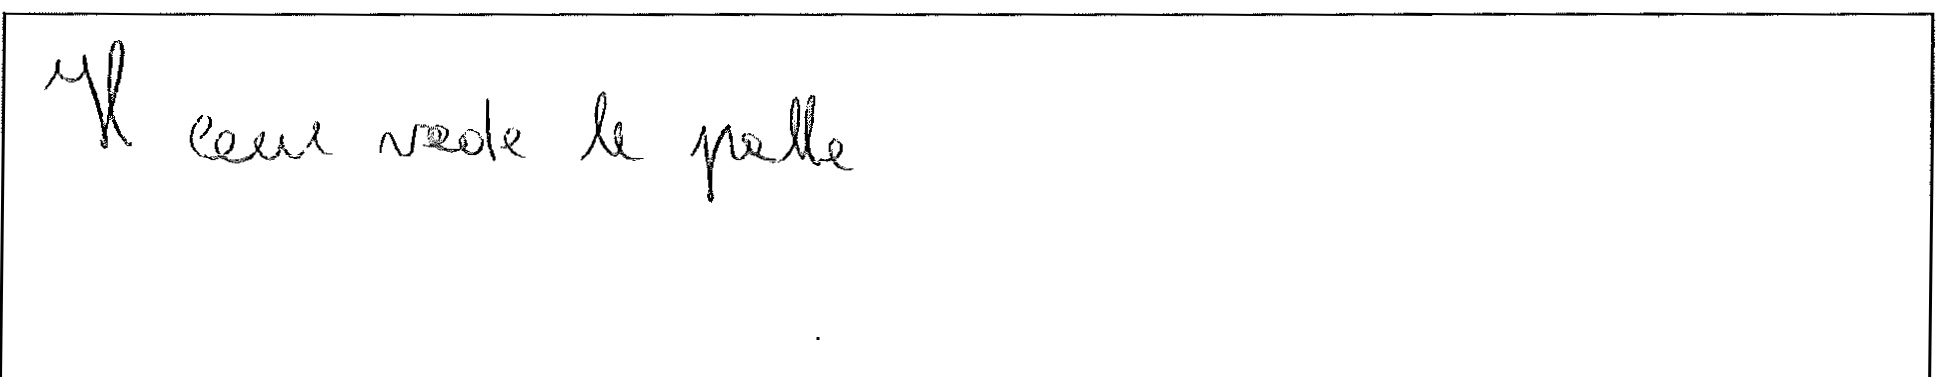 Il cane vede le palle